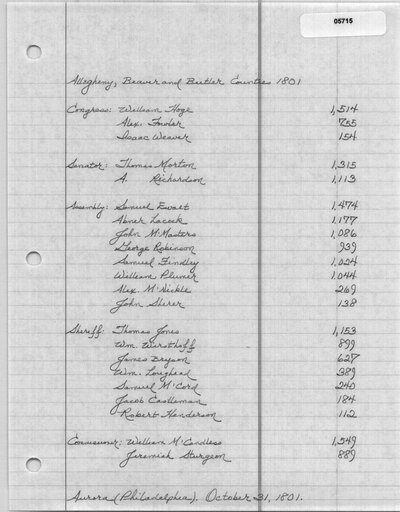 05715
Allegheny, Beaver and Butler Counties 1801
Congress: William Hoge 1,514
Alex. Fowler 765
Isaac Weaver 154
Senator: Thomas Morton 1,315
A. Richardson 1,113
Assembly: Samuel Ewalt 1,474
Abner Lacock 1,177
John McMasters 1,086
George Robinson 939
Samuel Findley 1,024
William Plumer 1,044
Alex. McNickle 269
John Sherer 138
Sheriff: Thomas Jones 1,153
Wm. Wusthoff 899
James Bryson 627
Wm. Loughead 389
Samuel McCord 240
Jacob Castleman 184
Robert Henderson 112
Comissioner: William McCandless 1,549
Jeremiah Sturgeon 889
Aurora (Philadelphia). October 31, 1801.